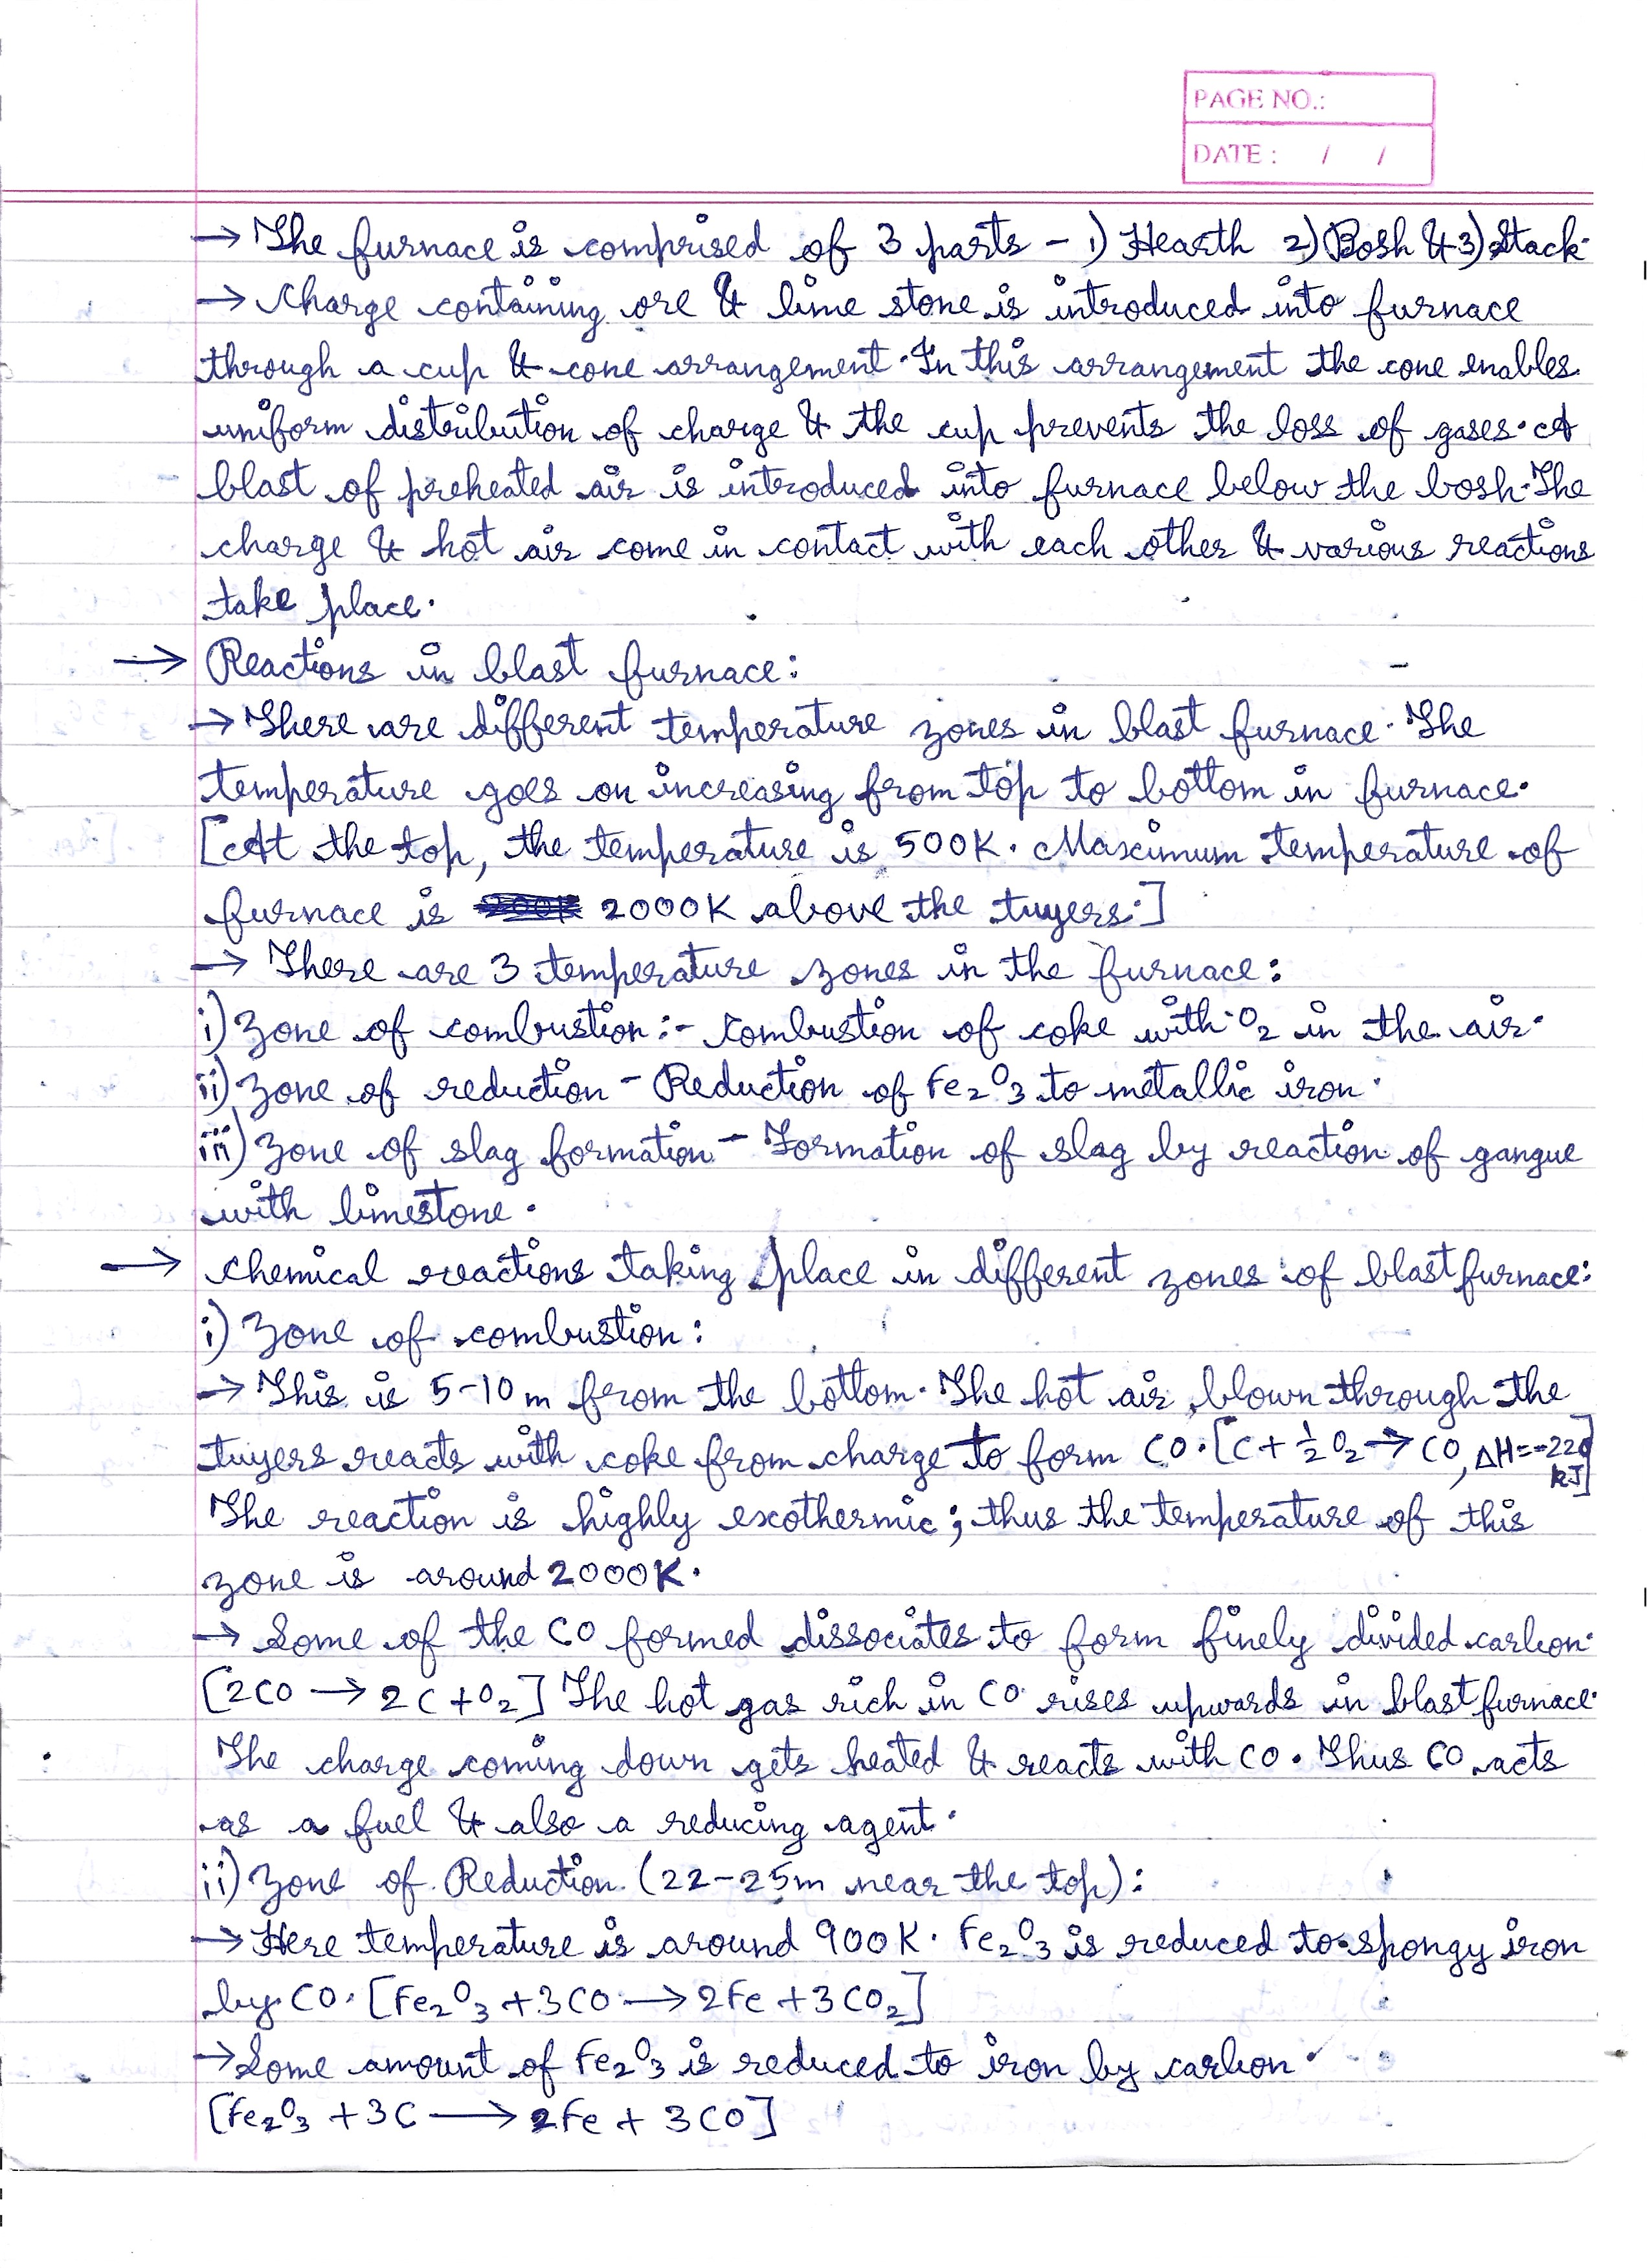 PAGE NO.:
DATE : / /
→ The furnace is comprised of 3 parts - 1) Hearth 2) Bosh & 3) Stack.
→ Charge containing ore & lime stone is introduced into furnace
through a cup & cone arrangement. In this arrangement the cone enables
uniform distribution of charge & the cup prevents the loss of gases. A
blast of preheated air is introduced into furnace below the bosh. The
charge & hot air come in contact with each other & various reactions
take place.
→ Reactions in blast furnace:
→ There are different temperature zones in blast furnace. The
temperature goes on increasing from top to bottom in furnace.
[At the top, the temperature is 500K. Maximum temperature of
furnace is 2000K above the tuyers.]
→ There are 3 temperature zones in the furnace:
i) Zone of combustion:- Combustion of coke with O₂ in the air.
ii) Zone of reduction - Reduction of Fe₂O₃ to metallic iron.
iii) Zone of slag formation - Formation of slag by reaction of gangue
with limestone.
→ Chemical reactions taking place in different zones of blast furnace:
i) Zone of combustion:
→ This is 5-10 m from the bottom. The hot air blown through the
tuyers reacts with coke from charge to form CO. [C + ½ O₂ → CO, ΔH = -220 kJ]
The reaction is highly exothermic; thus the temperature of this
zone is around 2000K.
→ Some of the CO formed dissociates to form finely divided carbon.
[2CO → 2C + O₂] The hot gas rich in CO rises upwards in blast furnace.
The charge coming down gets heated & reacts with CO. Thus CO acts
as a fuel & also a reducing agent.
ii) Zone of Reduction (22-25m near the top):
→ Here temperature is around 900K. Fe₂O₃ is reduced to spongy iron
by CO. [Fe₂O₃ + 3CO → 2Fe + 3CO₂]
→ Some amount of Fe₂O₃ is reduced to iron by carbon.
[Fe₂O₃ + 3C → 2Fe + 3CO]